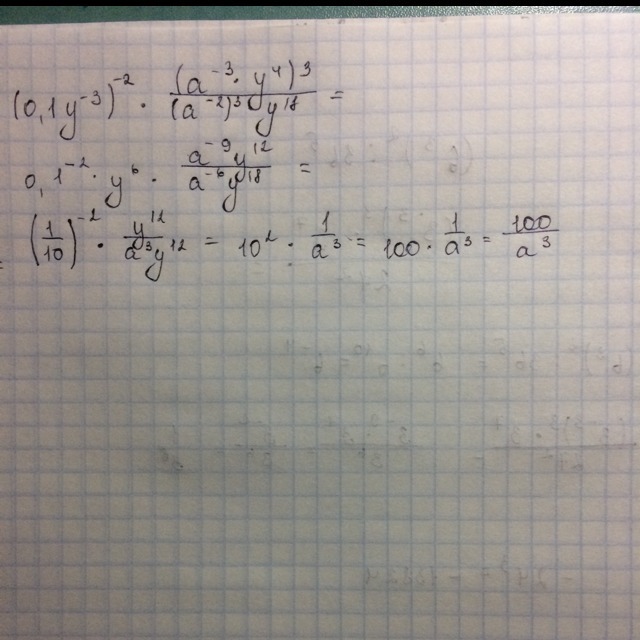 (0,1y⁻³)⁻² · (a⁻³ · y⁴)³ / (a⁻²)³ · y¹⁸ =
0,1⁻² · y⁶ · a⁻⁹y¹² / a⁻⁶y¹⁸ =
= (1/10)⁻² · y¹² / a³y¹² = 10² · 1/a³ = 100 · 1/a³ = 100/a³